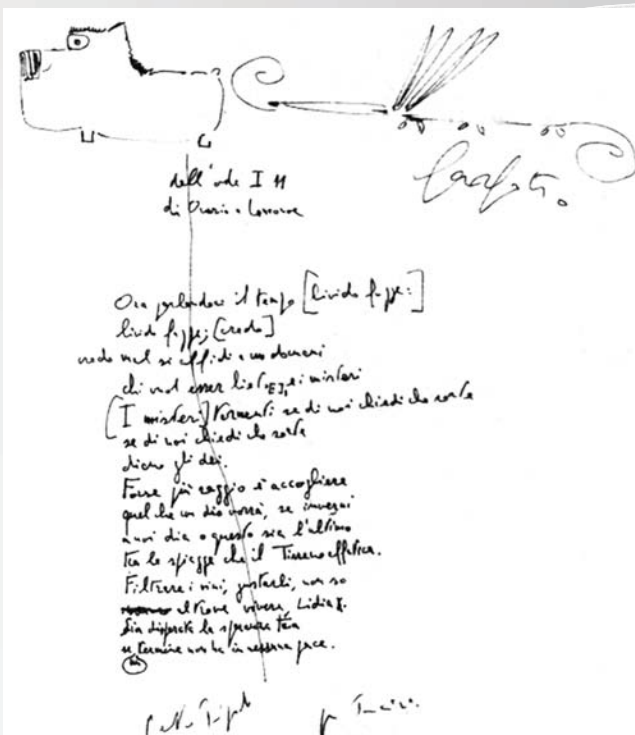 dell'ode I 11
di Orazio a
Ora parlando il tempo [livido fugge:]
livido fugge; [credo]
credo mal si affidi a un domani
chi vuol esser lieto, [E] e i misteri
[I misteri] tormenti se di noi chiedi che sorte
se di noi chiedi che sorte
diano gli dei.
Forse più saggio è accogliere
quel che un dio vorrà, se inverni
a noi dia o questo sia l'ultimo
tra le spiagge che il Tirreno affatica.
Filtrare i vini, gustarli, non so
altrove vivere, Lidia
Sia disperata la speranza tua
se termine non ha in nessuna pace.